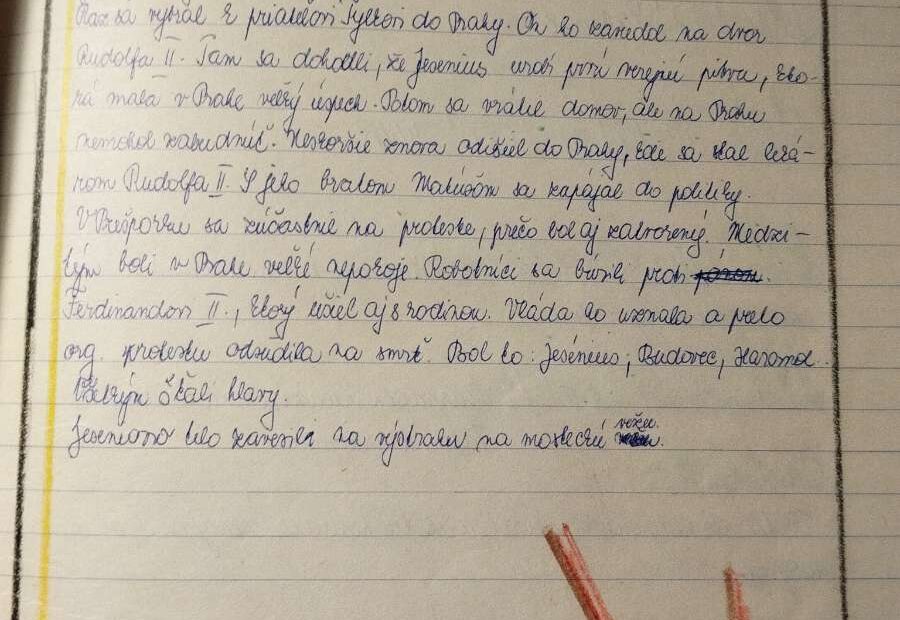 Raz sa vybral k priateľovi Tychovi do Prahy. On ho zaviedol na dvor
Rudolfa II. Tam sa dohodli, že Jesenius urobí prvú verejnú pitvu, kto-
rá mala v Prahe veľký úspech. Potom sa vrátil domov, ale na Prahu
nemohol zabudnúť. Neskoršie znova odišiel do Prahy, kde sa stal leká-
rom Rudolfa II. S jeho bratom Matúšom sa zapájal do politiky.
V Prešporku sa zúčastnil na proteste, prečo bol aj zatvorený. Medzi-
tým boli v Prahe veľké nepokoje. Robotníci sa búrili proti
Ferdinandovi II., ktorý ušiel aj s rodinou. Vláda ho uznala a preto
org. protestu odsúdila na smrť. Bol to: Jesénius, Budovec, Harant
Všetkým sťali hlavy.
Jeseniovo telo zavesili na výstrahu na mosteckú vežu.